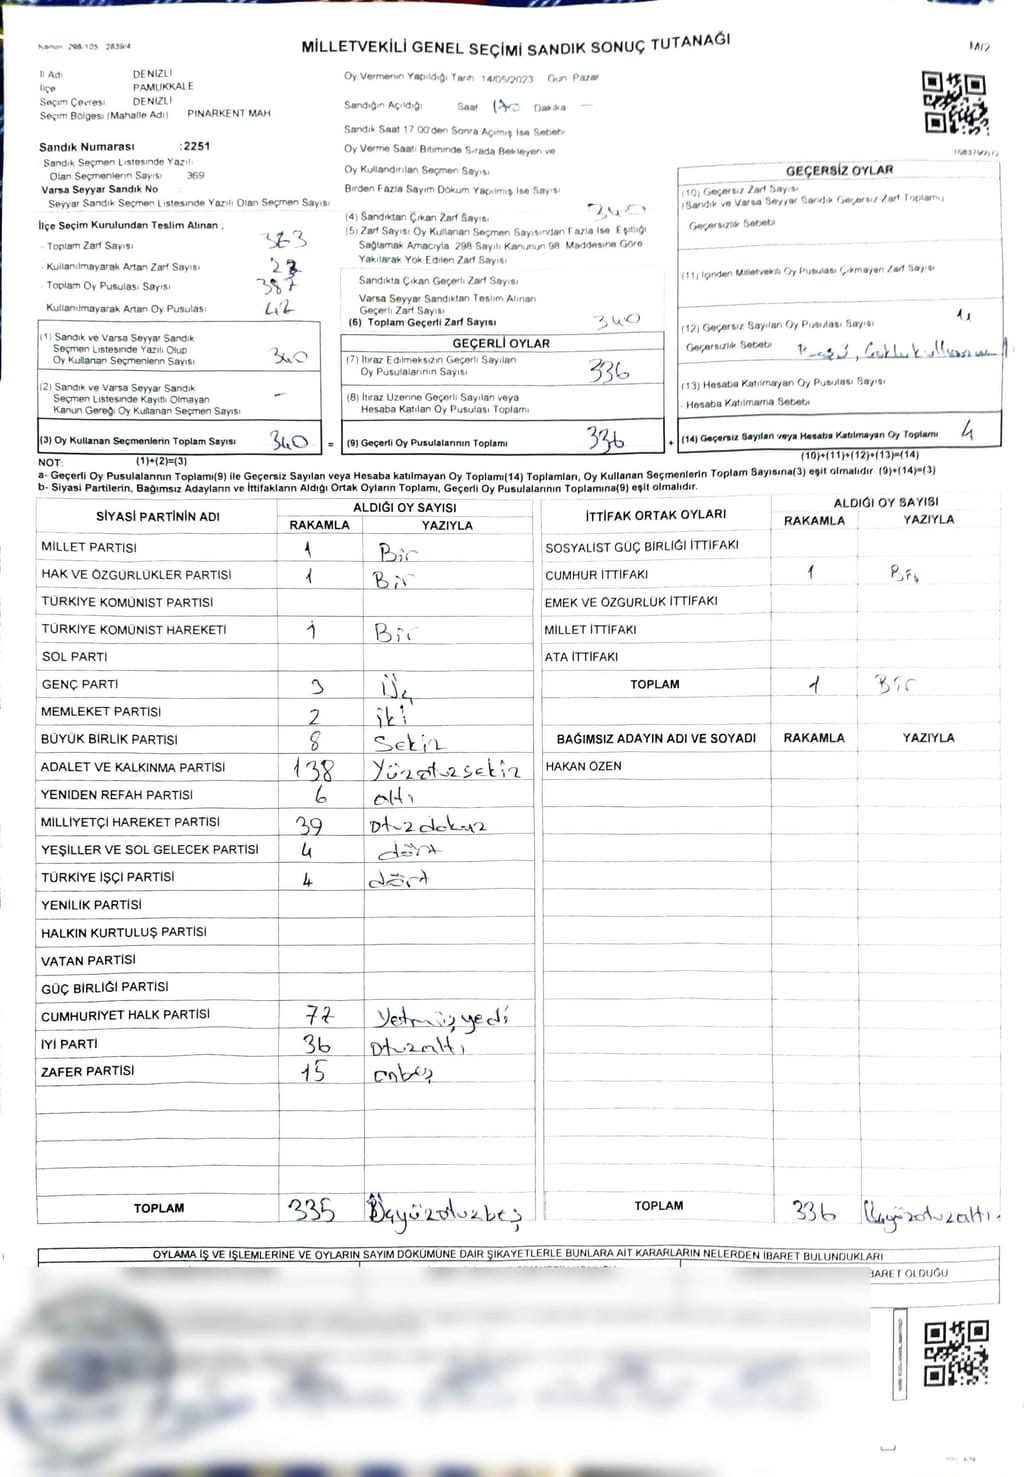 Kanun 298/105 2839/4
MİLLETVEKİLİ GENEL SEÇİMİ SANDIK SONUÇ TUTANAĞI
M/2
İl Adı DENİZLİ
İlçe PAMUKKALE
Seçim Çevresi DENİZLİ
Seçim Bölgesi (Mahalle Adı) PINARKENT MAH
Sandık Numarası :2251
Sandık Seçmen Listesinde Yazılı
Olan Seçmenlerin Sayısı 369
Varsa Seyyar Sandık No :
Seyyar Sandık Seçmen Listesinde Yazılı Olan Seçmen Sayısı
İlçe Seçim Kurulundan Teslim Alınan ;
- Toplam Zarf Sayısı
- Kullanılmayarak Artan Zarf Sayısı
- Toplam Oy Pusulası Sayısı 387
- Kullanılmayarak Artan Oy Pusulası 42
(1) Sandık ve Varsa Seyyar Sandık
Seçmen Listesinde Yazılı Olup
Oy Kullanan Seçmenlerin Sayısı 340
(2) Sandık ve Varsa Seyyar Sandık
Seçmen Listesinde Kayıtlı Olmayan
Kanun Gereği Oy Kullanan Seçmen Sayısı –
(3) Oy Kullanan Seçmenlerin Toplam Sayısı 340 =
Oy Vermenin Yapıldığı Tarih 14/05/2023 Gün Pazar
Sandığın Açıldığı Saat Dakika —
Sandık Saat 17 00'den Sonra Açılmış İse Sebebi
Oy Verme Saati Bitiminde Sırada Bekleyen ve
Oy Kullandırılan Seçmen Sayısı
Birden Fazla Sayım Döküm Yapılmış İse Sayısı
(4) Sandıktan Çıkan Zarf Sayısı 340
(5) Zarf Sayısı Oy Kullanan Seçmen Sayısından Fazla İse Eşitliği
Sağlamak Amacıyla 298 Sayılı Kanunun 98 Maddesine Göre
Yakılarak Yok Edilen Zarf Sayısı
Sandıkta Çıkan Geçerli Zarf Sayısı
Varsa Seyyar Sandıktan Teslim Alınan
Geçerli Zarf Sayısı
(6) Toplam Geçerli Zarf Sayısı 340
GEÇERLİ OYLAR
(7) İtiraz Edilmeksizin Geçerli Sayılan
Oy Pusulalarının Sayısı 336
(8) İtiraz Üzerine Geçerli Sayılan veya
Hesaba Katılan Oy Pusulası Toplamı
(9) Geçerli Oy Pusulalarının Toplamı 336 +
GEÇERSİZ OYLAR
(10) Geçersiz Zarf Sayısı
(Sandık ve Varsa Seyyar Sandık Geçersiz Zarf Toplamı)
Geçersizlik Sebebi
(11) İçinden Milletvekili Oy Pusulası Çıkmayan Zarf Sayısı
(12) Geçersiz Sayılan Oy Pusulası Sayısı 4
- Geçersizlik Sebebi
(13) Hesaba Katılmayan Oy Pusulası Sayısı
- Hesaba Katılmama Sebebi
(14) Geçersiz Sayılan veya Hesaba Katılmayan Oy Toplamı 4
NOT: (1)+(2)=(3) (10)+(11)+(12)+(13)=(14)
a- Geçerli Oy Pusulalarının Toplamı(9) ile Geçersiz Sayılan veya Hesaba katılmayan Oy Toplamı(14) Toplamları, Oy Kullanan Seçmenlerin Toplam Sayısına(3) eşit olmalıdır. (9)+(14)=(3)
b- Siyasi Partilerin, Bağımsız Adayların ve İttifakların Aldığı Ortak Oyların Toplamı, Geçerli Oy Pusulalarının Toplamına(9) eşit olmalıdır.
SİYASİ PARTİNİN ADI ALDIĞI OY SAYISI
RAKAMLA YAZIYLA
MİLLET PARTİSİ 1 Bir
HAK VE ÖZGÜRLÜKLER PARTİSİ 1 Bir
TÜRKİYE KOMÜNİST PARTİSİ
TÜRKİYE KOMÜNİST HAREKETİ 1 Bir
SOL PARTİ
GENÇ PARTİ 3 Üç
MEMLEKET PARTİSİ 2 iki
BÜYÜK BİRLİK PARTİSİ 8 Sekiz
ADALET VE KALKINMA PARTİSİ 138 Yüzotuzsekiz
YENİDEN REFAH PARTİSİ 6 altı
MİLLİYETÇİ HAREKET PARTİSİ 39 otuzdokuz
YEŞİLLER VE SOL GELECEK PARTİSİ 4 dört
TÜRKİYE İŞÇİ PARTİSİ 4 dört
YENİLİK PARTİSİ
HALKIN KURTULUŞ PARTİSİ
VATAN PARTİSİ
GÜÇ BİRLİĞİ PARTİSİ
CUMHURİYET HALK PARTİSİ 77 Yetmişyedi
İYİ PARTİ 36 otuzaltı
ZAFER PARTİSİ 15 onbeş
TOPLAM 335 Üçyüzotuzbeş
İTTİFAK ORTAK OYLARI ALDIĞI OY SAYISI
RAKAMLA YAZIYLA
SOSYALİST GÜÇ BİRLİĞİ İTTİFAKI
CUMHUR İTTİFAKI 1 Bir
EMEK VE ÖZGÜRLÜK İTTİFAKI
MİLLET İTTİFAKI
ATA İTTİFAKI
TOPLAM 1 Bir
BAĞIMSIZ ADAYIN ADI VE SOYADI RAKAMLA YAZIYLA
HAKAN ÖZEN
TOPLAM 336 Üçyüzotuzaltı
OYLAMA İŞ VE İŞLEMLERİNE VE OYLARIN SAYIM DÖKÜMÜNE DAİR ŞİKAYETLERLE BUNLARA AİT KARARLARIN NELERDEN İBARET BULUNDUKLARI
BARET OLDUĞU